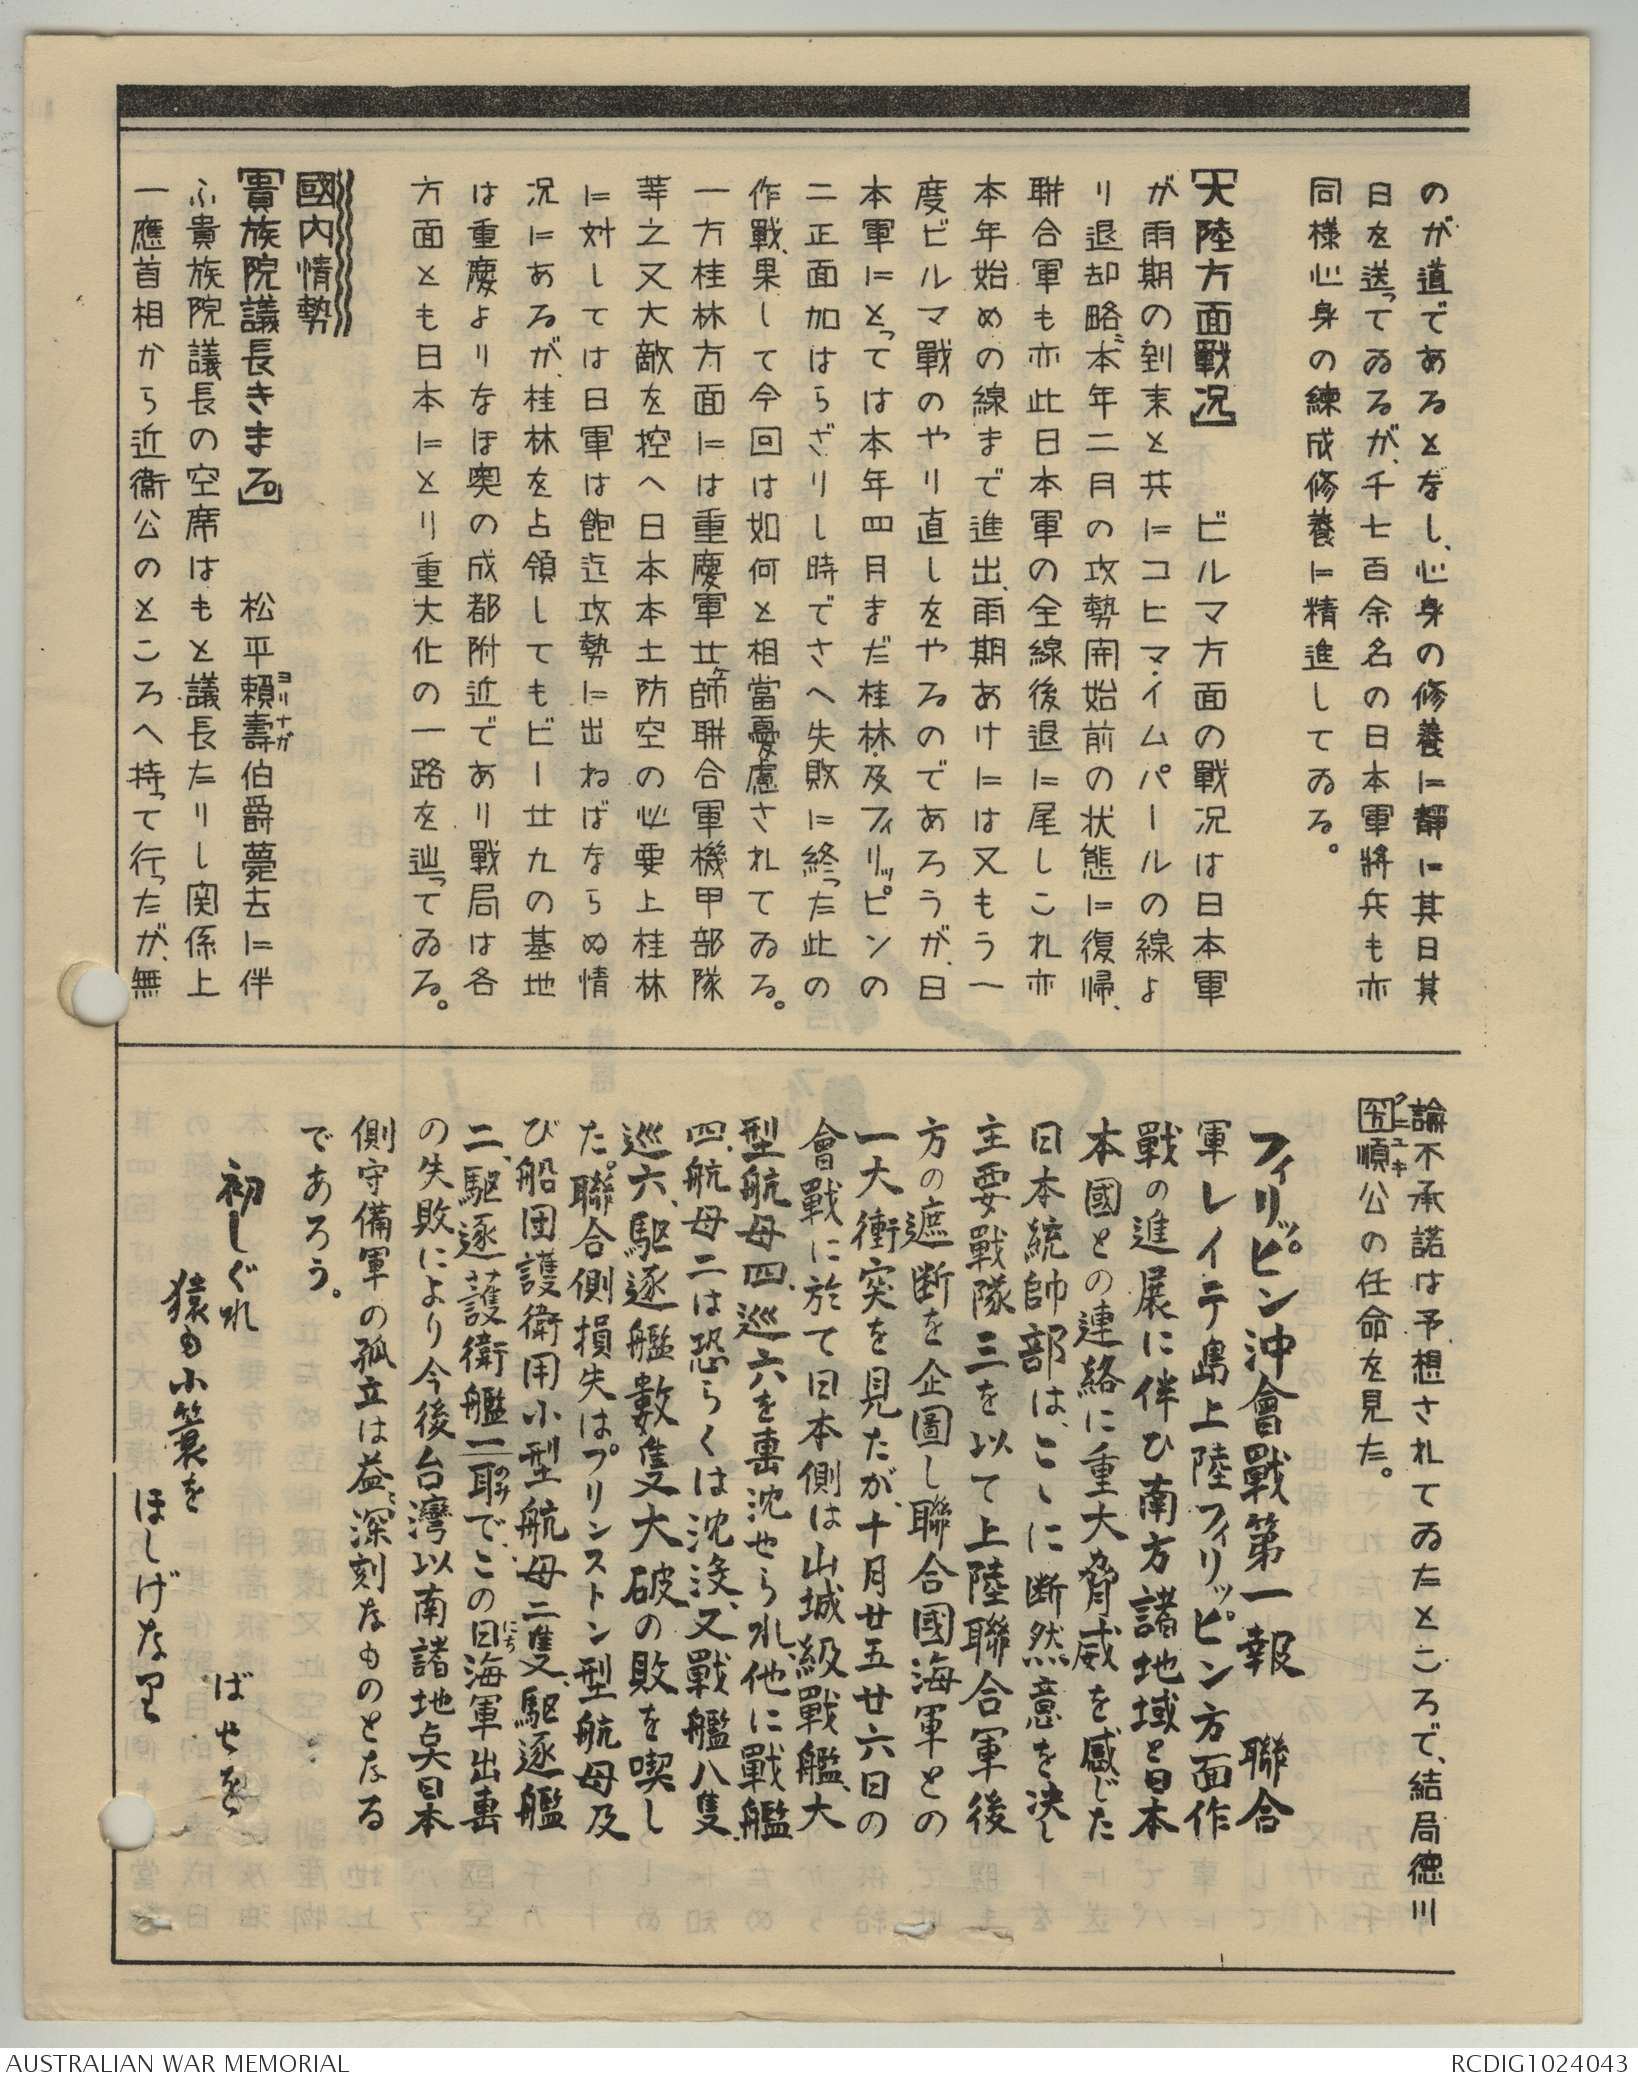 のが道であるとなし、心身の修養に静に其日其
日を送ってゐるが、千七百余名の日本軍將兵も亦
同様心身の練成修養に精進してゐる。
【大陸方面戰況】 ビルマ方面の戰況は日本軍
が雨期の到来と共にコヒマ・イムパールの線よ
り退却略〻本年二月の攻勢開始前の状態に復帰、
聯合軍も亦此日本軍の全線後退に尾しこれ亦
本年始めの線まで進出、雨期あけには又もう一
度ビルマ戰のやり直しをやるのであろうが、日
本軍にとっては本年四月まだ桂林・及フィリッピンの
二正面加はらざりし時でさへ失敗に終った此の
作戰、果して今回は如何と相當憂慮されてゐる。
一方桂林方面には重慶軍廿ケ師聯合軍機甲部隊
等之又大敵を控へ日本本土防空の必要上桂林
に対しては日軍は飽迄攻勢に出ねばならぬ情
況にあるが、桂林を占領してもビー廿九の基地
は重慶よりなほ奥の成都附近であり戰局は各
方面とも日本にとり重大化の一路を辿ってゐる。
國内情勢
【貴族院議長きまる】 松平頼壽伯爵薨去に伴
ヨリナガ
ふ貴族院議長の空席はもと議長たりし関係上
一應首相から近衞公のところへ持って行ったが、無
論不承諾は予想されてゐたところで、結局徳川
圀順公の任命を見た。
クニユキ
フィリッピン沖會戰第一報 聯合
軍レイテ島上陸フィリッピン方面作
戰の進展に伴ひ南方諸地域と日本
本國との連絡に重大脅威を感じた
日本統帥部は、こゝに断然意を決し
主要戰隊三を以て上陸聯合軍後
方の遮断を企圖し聯合國海軍との
一大衝突を見たが、十月廿五廿六日の
會戰に於て日本側は山城級戰艦、大
型航母四、巡六を轟沈せられ、他に戰艦
四、航母二は恐らくは沈没、又戰艦八隻
巡六、駆逐艦數隻大破の敗を喫し
た。聯合側損失はプリンストン型航母及
び船団護衛用小型航母二隻、駆逐艦
二、駆逐護衛艦一耳でこの日海軍出轟
のみ
にち
の失敗により今後台湾以南諸地点日本
側守備軍の孤立は益〻深刻なものとなる
であろう。
初しぐれ
猿も小簑を
ほしげなり
ばせを
AUSTRALIAN WAR MEMORIAL
RCDIG1024043